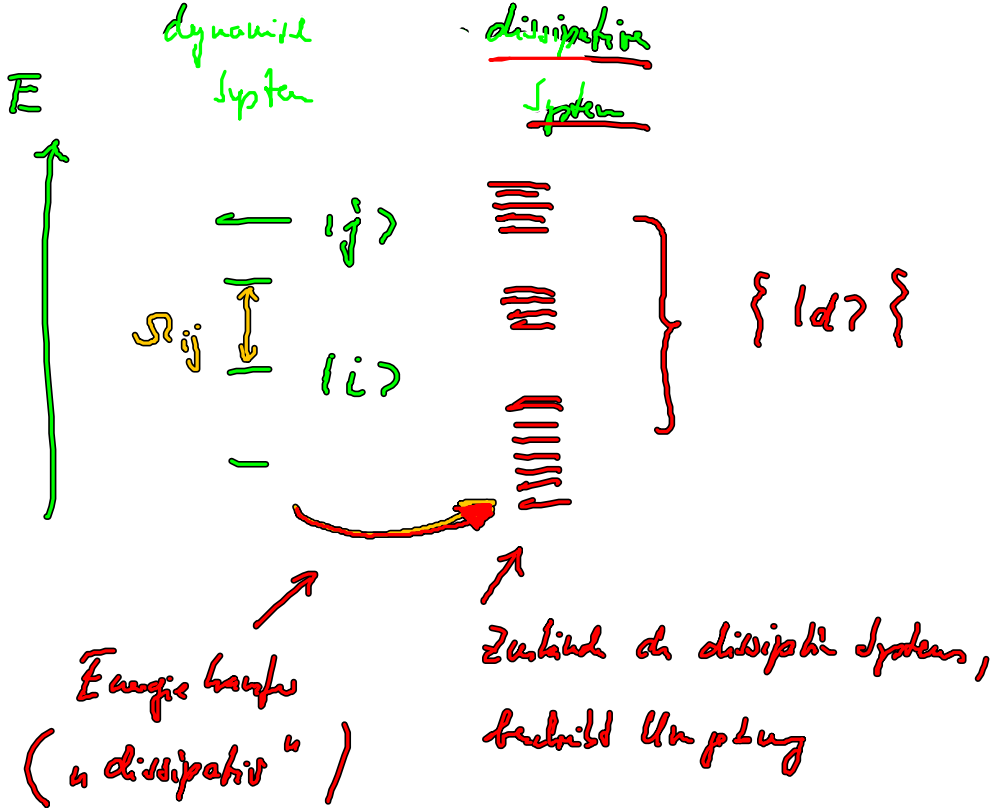 dynamisch
System
dissipatives
System
E
|j>
Ω_ij
|i>
{ |d> }
Energietransfer
(„dissipativ“)
Zustände des dissipativen Systems,
beschreibt Umgebung